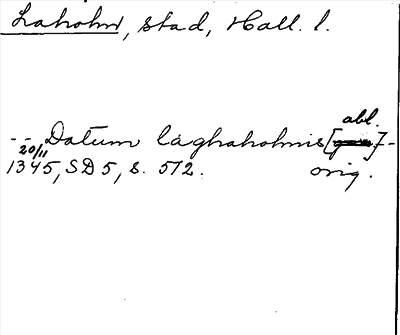 Laholm, stad, Hall. l.
abl.
-- Datum laghaholmis [gen] --
20/11
1345, SD 5, s. 572. orig.